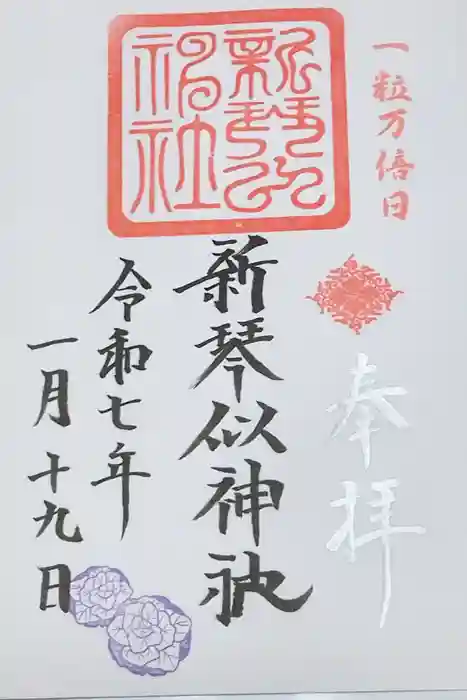 一粒万倍日
奉拝
新琴似神社
令和七年
一月十九日
新琴似
神社